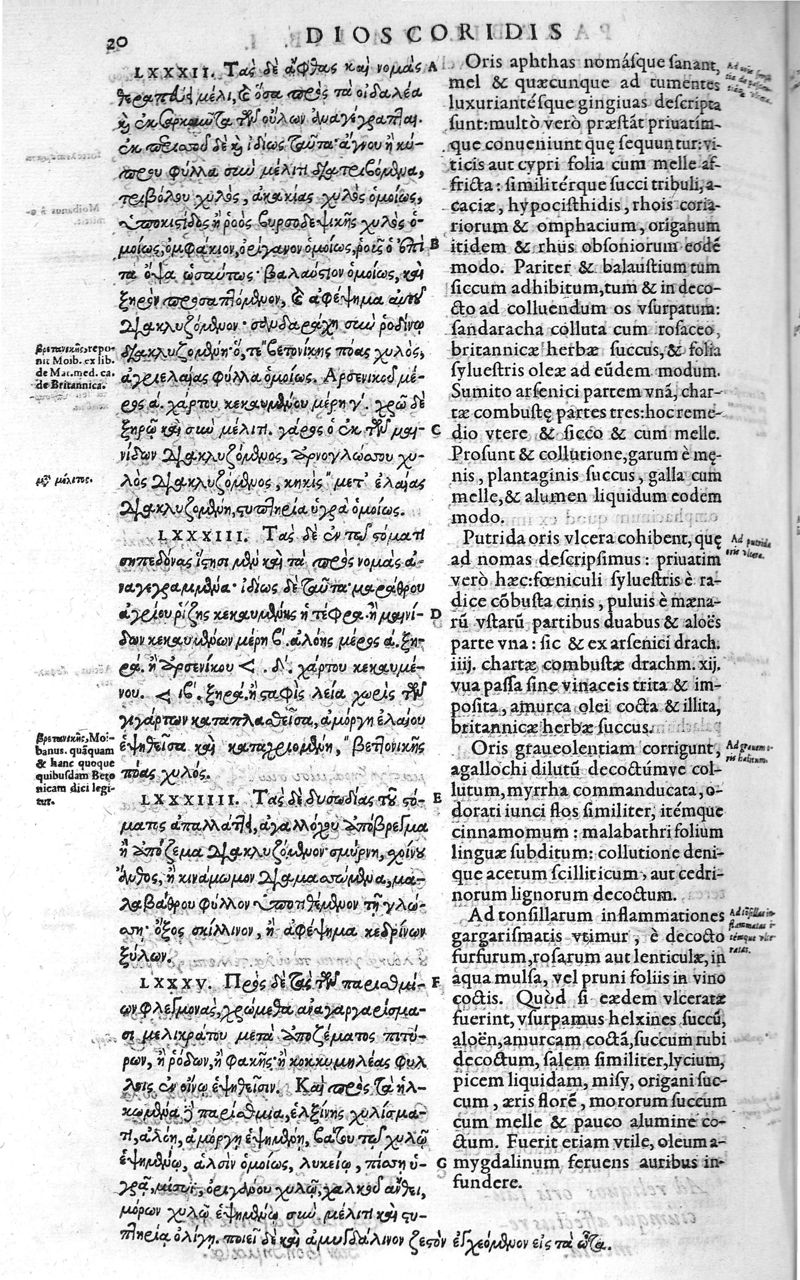 20
DIOSCORIDIS
LXXXII. Τὰς δὲ ἄφθας καὶ νομὰς
θεραπεύει μέλι, καὶ ὅσα πρὸς τὰ οἰδαλέα
καὶ ἐκσαρκοῦντα τῶν οὔλων ἀναγέγραπται.
δὲ καὶ ἰδίως ταῦτα· ἄγνου ἢ κύ-
πρου φύλλα σὺν μέλιτι διατριβόμενα,
τριβόλου χυλὸς, ἀκακίας χυλὸς ὁμοίως,
ὑποκιστίδος ἢ ῥοὸς βυρσοδεψικῆς χυλὸς ὁ-
μοίως, ὀμφάκιον, ὀρίγανον ὁμοίως, ῥοῦς ὁ ἐπὶ
τὰ ὄψα ὡσαύτως· βαλαύστιον ὁμοίως, καὶ
ξηρὸν προσαπτόμενον, καὶ ἀφέψημα αὐτοῦ
διακλυζόμενον· σανδαράχη σὺν ῥοδίνῳ
διακλυζομένη· ὅ, τε "βετονίκης πόας χυλὸς,
ἀγριελαίας φύλλα ὁμοίως. Ἀρσενικοῦ μέ-
ρος α. χάρτου κεκαυμένου μέρη γ΄. χρῶ δὲ
ξηρῷ καὶ σὺν μέλιτι. γάρος ὁ ἐκ τῶν μαι-
νίδων διακλυζόμενος, ἀρνογλώσσου χυ-
λὸς διακλυζόμενος, κηκὶς" μετ' ἐλαίας
διακλυζομένη, στυπτηρία ὑγρὰ ὁμοίως.
LXXXIII. Τὰς δὲ ἐν τῷ στόματι
σηπεδόνας ἵστησι μὲν καὶ τὰ πρὸς νομὰς ἀ-
ναγεγραμμένα· ἰδίως δὲ ταῦτα· μαράθρου
ἀγρίου ῥίζης κεκαυμένης ἡ τέφρα. ἢ μαινί-
δων κεκαυμένων μέρη β΄. ἀλόης μέρος α. ξη-
ρά. ἢ ἀρσενίκου <. δ΄. χάρτου κεκαυμέ-
νου. < ιβ΄. ξηρά. ἢ σταφὶς λεία χωρὶς τῶν
γιγάρτων καταπλασθεῖσα, ἀμόργη ἐλαίου
ἑψηθεῖσα καὶ καταχριομένη, "βετονικῆς
πόας χυλός.
LXXXIIII. Τὰς δὲ δυσωδίας τοῦ στό-
ματος ἀπαλλάττει, ἀγαλλόχου ἀπόβρεγμα
ἢ ἀπόζεμα διακλυζόμενον· σμύρνη, σχίνου
ἄνθος, ἢ κινάμωμον διαμασσώμενα, μα-
λαβάθρου φύλλον ὑποτιθέμενον τῇ γλώσ-
σῃ· ὄξος σκίλλινον, ἢ ἀφέψημα κεδρίνων
ξύλων.
LXXXV. Πρὸς δὲ τὰς τῶν παρισθμί-
ων φλεγμονὰς, χρώμεθα ἀναγαργαρίσμα-
σι μελικράτου μετὰ ἀποζέματος πιτύ-
ρων, ἢ ῥόδων, ἢ φακῆς· ἢ κοκκυμηλέας φύλ-
λοις ἐν οἴνῳ ἑψηθεῖσιν. Καὶ πρὸς τὰ ἡλ-
κωμένα παρίσθμια, ἑλξίνης χυλίσμα-
τι, ἀλόη, ἀμόργη ἑψημένη, βάτου τῷ χυλῷ
ἑψημένῳ, ἁλσὶν ὁμοίως, λυκείῳ, πίσσῃ ὑ-
γρᾷ, μίσυϊ, ὀριγάνου χυλῷ, χαλκοῦ ἄνθει,
μόρων χυλῷ ἑψημένῳ σὺν μέλιτι καὶ στυ-
πτηρίᾳ ὀλίγῃ. ποιεῖ δὲ καὶ ἀμυγδάλινον ζεστὸν ἐγχεόμενον εἰς τὰ ὦτα.
A
B
C
D
E
F
G
Oris aphthas nomásque sanant,
mel & quæcunque ad tumentes
luxuriantésque gingiuas descripta
sunt: multò verò præstãt priuatim-
que conueniunt quę sequuntur: vi-
ticis aut cypri folia cum melle af-
fricta: similitérque succi tribuli, a-
caciæ, hypocisthidis, rhois coria-
riorum & omphacium, origanum
itidem & rhus obsoniorum eodẽ
modo. Pariter & balaustium tum
siccum adhibitum, tum & in deco-
cto ad colluendum os vsurpatum:
sandaracha colluta cum rosaceo,
britannicæ herbæ succus, & folia
syluestris oleæ ad eũdem modum.
Sumito arsenici partem vnã, char-
tæ combustę partes tres: hoc reme-
dio vtere & sicco & cum melle.
Prosunt & collutione, garum è mę-
nis, plantaginis succus, galla cum
melle, & alumen liquidum eodem
modo.
Putrida oris vlcera cohibent, quę
ad nomas descripsimus: priuatim
verò hæc: fœniculi syluestris è ra-
dice cõbusta cinis, puluis è mæna-
rũ vstarũ partibus duabus & aloës
parte vna: sic & ex arsenici drach.
iiij. chartæ combustæ drachm. xij.
vua passa sine vinaceis trita & im-
posita, amurca olei cocta & illita,
britannicæ herbæ succus.
Oris graueolentiam corrigunt,
agallochi dilutũ decoctúmve col-
lutum, myrrha commanducata, o-
dorati iunci flos similiter, itémque
cinnamomum: malabathri folium
linguæ subditum: collutione deni-
que acetum scilliticum, aut cedri-
norum lignorum decoctum.
Ad tonsillarum inflammationes
gargarismatis vtimur, è decocto
furfurum, rosarum aut lenticulæ, in
aqua mulsa, vel pruni foliis in vino
coctis. Quòd si eædem vlceratæ
fuerint, vsurpamus helxines succũ,
aloën, amurcam coctã, succum rubi
decoctum, salem similiter, lycium,
picem liquidam, misy, origani suc-
cum, æris florẽ, mororum succum
cum melle & pauco alumine co-
ctum. Fuerit etiam vtile, oleum a-
mygdalinum feruens auribus in-
fundere.
βρετανικῆς, repo-
nit Moib. ex lib.
de Mat. med. ca.
de Britannica.
μξ μέλιτος.
βρετανικῆς, Moi-
banus. quãquam
& hanc quoque
quibusdam Beto
nicam dici legi-
tur.
Ad putrida
oris vlcera.
Ad grauem o-
ris halitum.
Ad tõsillas in-
flammatas i-
témque vlce-
ratas.